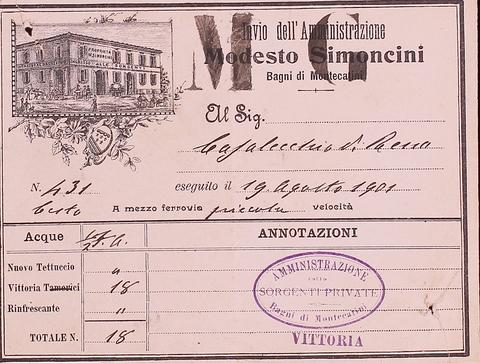 M G
Invio dell'Amministrazione
Modesto Simoncini
Bagni di Montecatini
PROPRIETÀ
Al Sig.
Casalecchio di Reno
N. 431 eseguito il 19 agosto 1901
Cesto A mezzo ferrovia piccola velocità
Acque ANNOTAZIONI
Nuovo Tettuccio "
Vittoria Tamerici 18
Rinfrescante "
TOTALE N. 18
AMMINISTRAZIONE
DELLE
SORGENTI PRIVATE
Bagni di Montecatini
VITTORIA